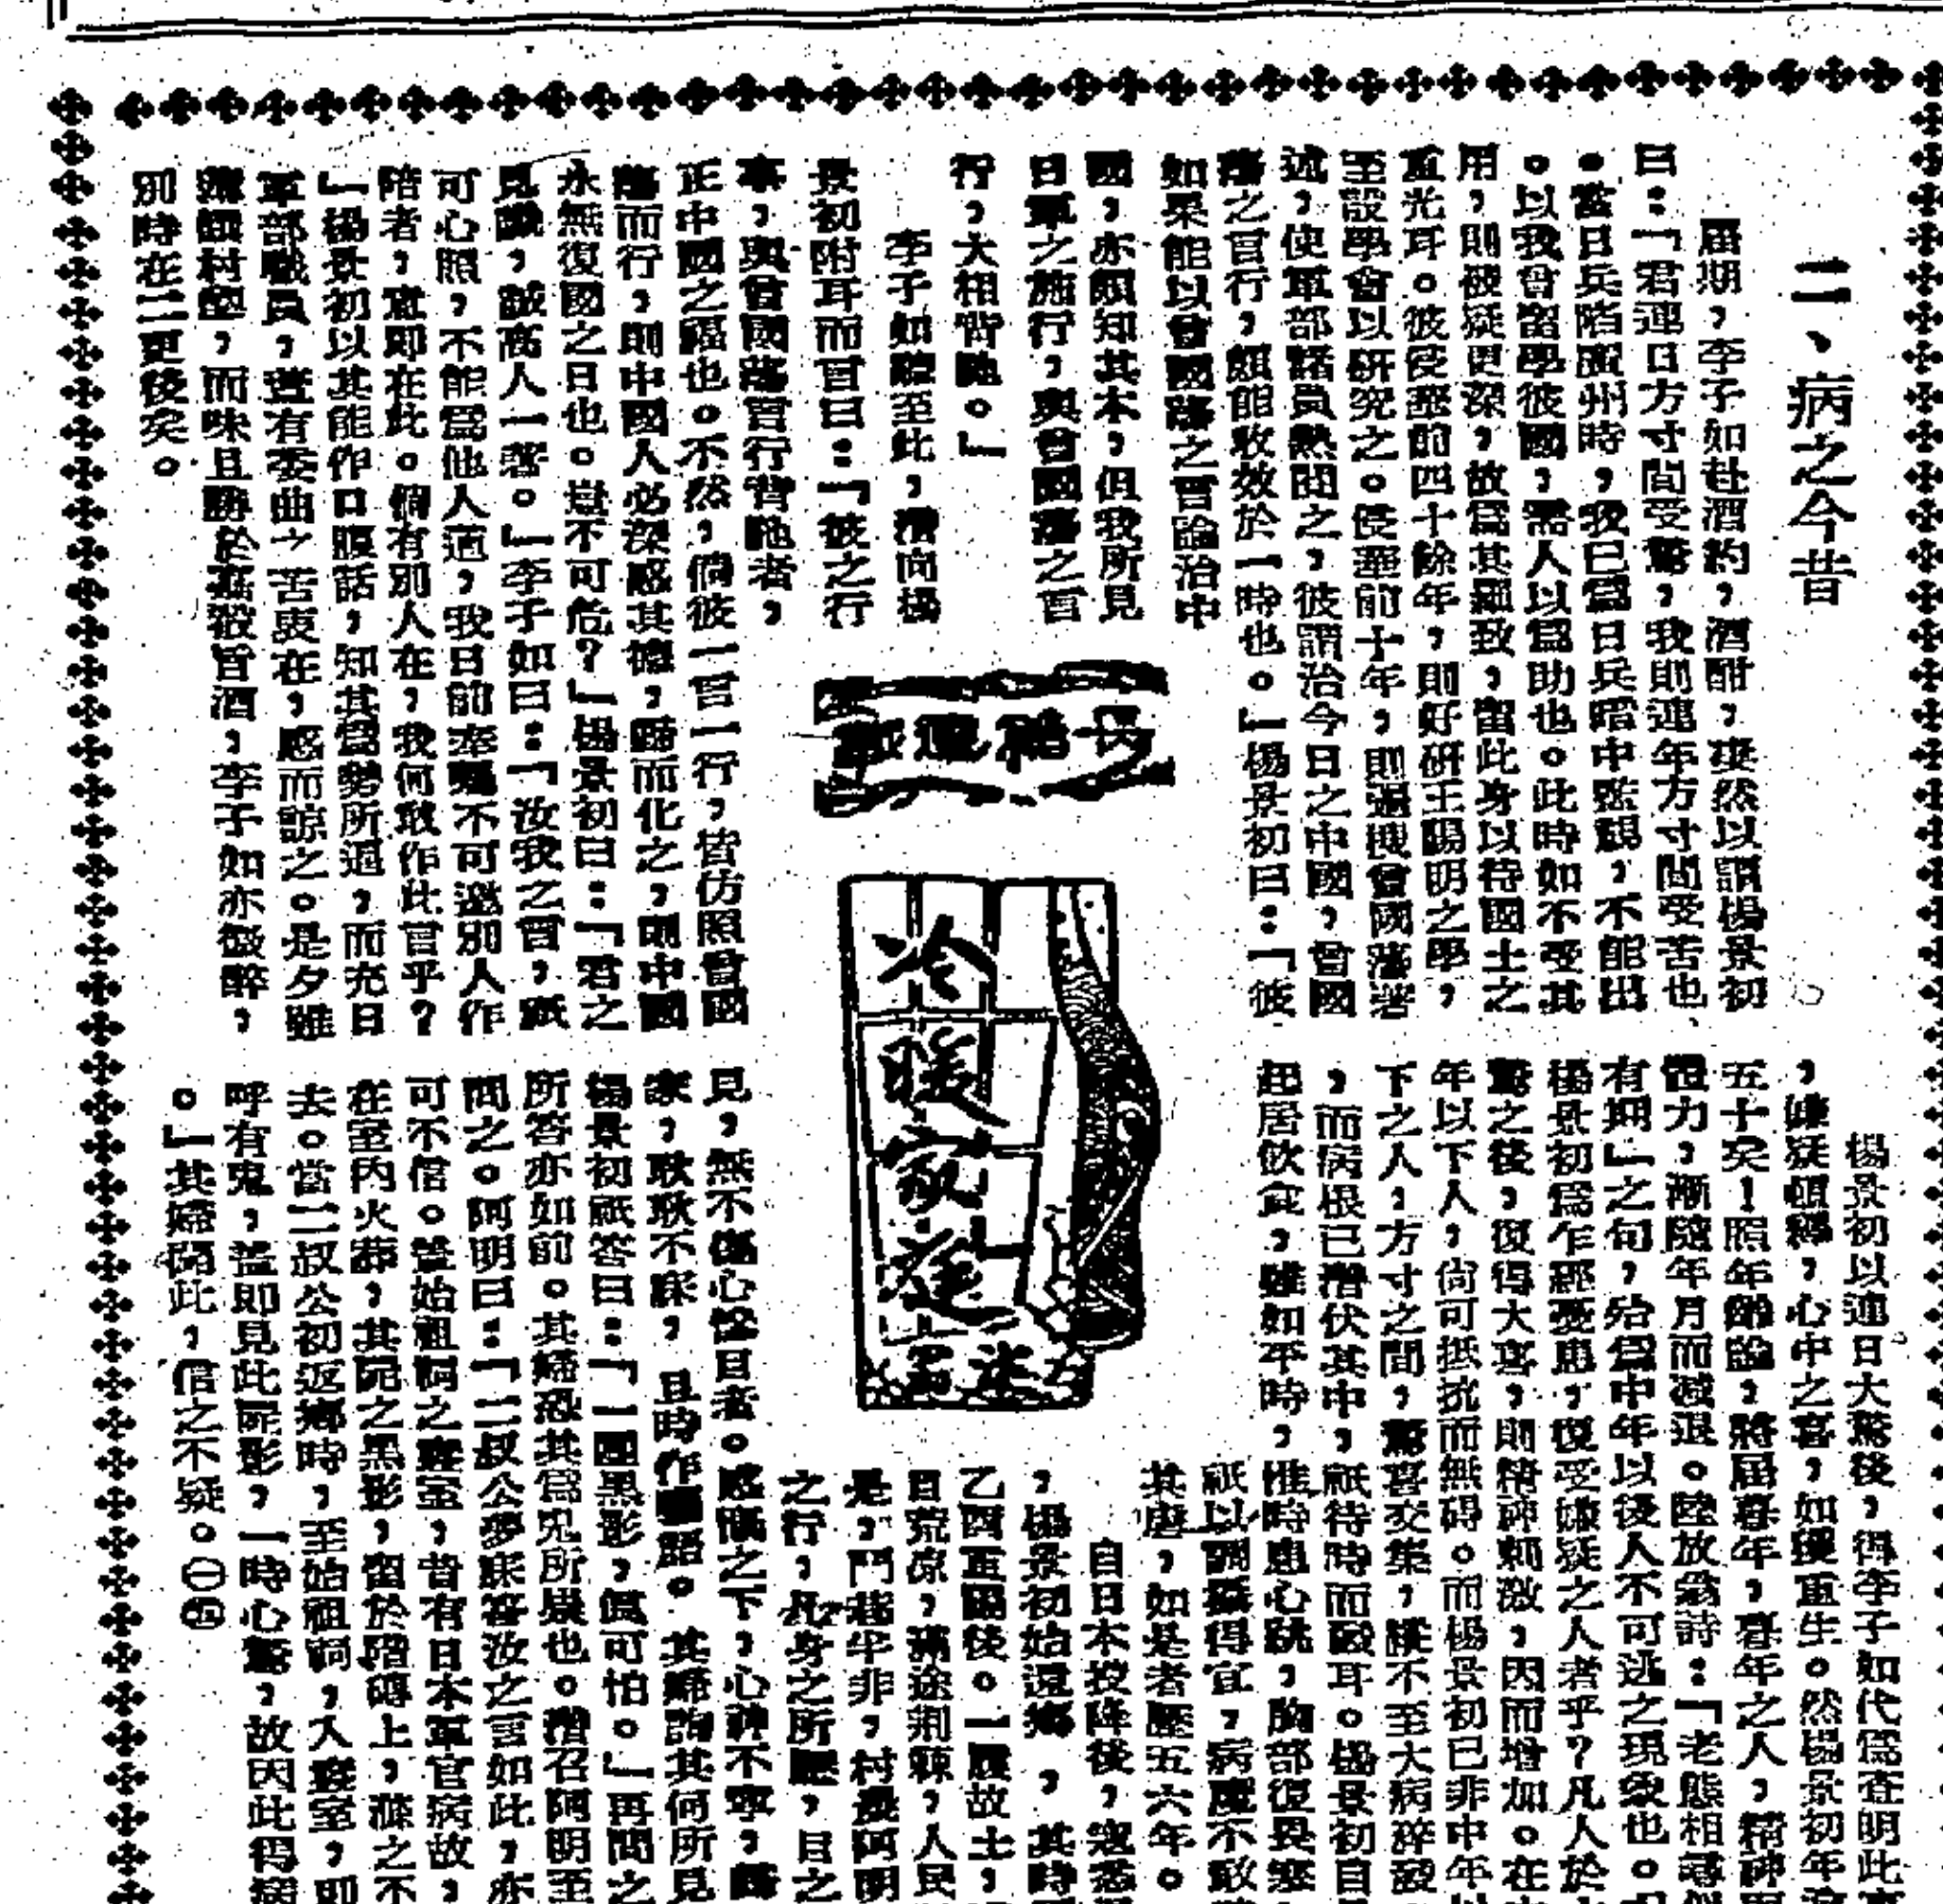 二、病之今昔
屆期，李子如赴酒約，酒酣，淒然以謂楊景初
曰：「君連日方寸間受驚，我則連年方寸間受苦也
。當日兵陷廣州時，我已爲日兵暗中監視，不能出
。以我曾留學彼國，需人以爲助也。此時如不受其
用，則被疑更深，故爲其羅致，留此身以待國土之
重光耳。彼侵華前四十餘年，則好研王陽明之學，
至設學會以研究之。侵華前十年，則遍搜曾國藩著
述，使軍部諸員熱閱之，彼謂治今日之中國，曾國
藩之言行，頗能收效於一時也。」楊景初曰：「彼
如果能以曾國藩之言論治中
國，亦頗知其本，但我所見
日軍之施行，與曾國藩之言
行，大相背馳。」
李子如聽至此，潛向楊
景初附耳而言曰：「彼之行
事，與曾國藩言行背馳者，
正中國之福也。不然，倘彼一言一行，皆仿照曾國
藩而行，則中國人必深感其德，歸而化之，則中國
永無復國之日也。豈不可危？」楊景初曰：「君之
見識，誠高人一著。」李子如曰：「汝我之言，祇
可心照，不能爲他人道，我日前奉囑不可邀別人作
陪者，意即在此。倘有別人在，我何敢作此言乎？
」楊景初以其能作口腹話，知其爲勢所逼，而充日
軍部職員，豈有委曲之苦衷在，感而諒之。是夕雖
濁醪村塾，而味且勝於嘉殽旨酒，李子如亦微醉，
別時在二更後矣。
長篇連載
冷暖家庭
楊景初以連日大驚後，得李子如代爲查明此
，嫌疑頓釋，心中之喜，如獲重生。然楊景初年
五十矣！照年齡論，將屆暮年，暮年之人，精神
體力，漸隨年月而減退。陸放翁詩：「老態相尋
有期」之句，殆爲中年以後人不可逃之現象也。
楊景初爲乍經憂患，復受嫌疑之人者乎？凡人於
驚之後，復得大喜，則精神刺激，因而增加。在
年以下人，尙可抵抗而無碍。而楊景初已非中年
下之人，方寸之間，驚喜交集，縱不至大病猝發
，而病根已潛伏其中，祇待時而發耳。楊景初自
起居飲食，雖如平時，惟時患心跳，胸部復畏寒
祇以調攝得宜，病魔不敢
其虐，如是者歷五六年。
自日本投降後，寇
，楊景初始還鄉，其時
乙酉重陽後。一履故土，
目荒凉，滿途荆棘，人民
是，門巷半非，村農阿明
之行，凡身之所歷，目之
見，無不傷心怪目者。感慨之下，心神不寧，歸
家，耿耿不寐，且時作囈語。其婦詢其何所見
楊景初祇答曰：「一團黑影，眞可怕。」再問之
所答亦如前。其婦恐其爲鬼所崇也。潛召阿明至
問之。阿明曰：「二叔公夢寐答汝之言如此，亦
可不信。蓋始祖祠之寢室，昔有日本軍官病故，
在室内火葬，其屍之黑影，留於階磚上，滌之不
去。當二叔公初返鄉時，至始祖祠，入寢室，即
呼有鬼，蓋即見此屍影，一時心驚，故因此得病
。」其婦聞此，信之不疑。㊀㊄